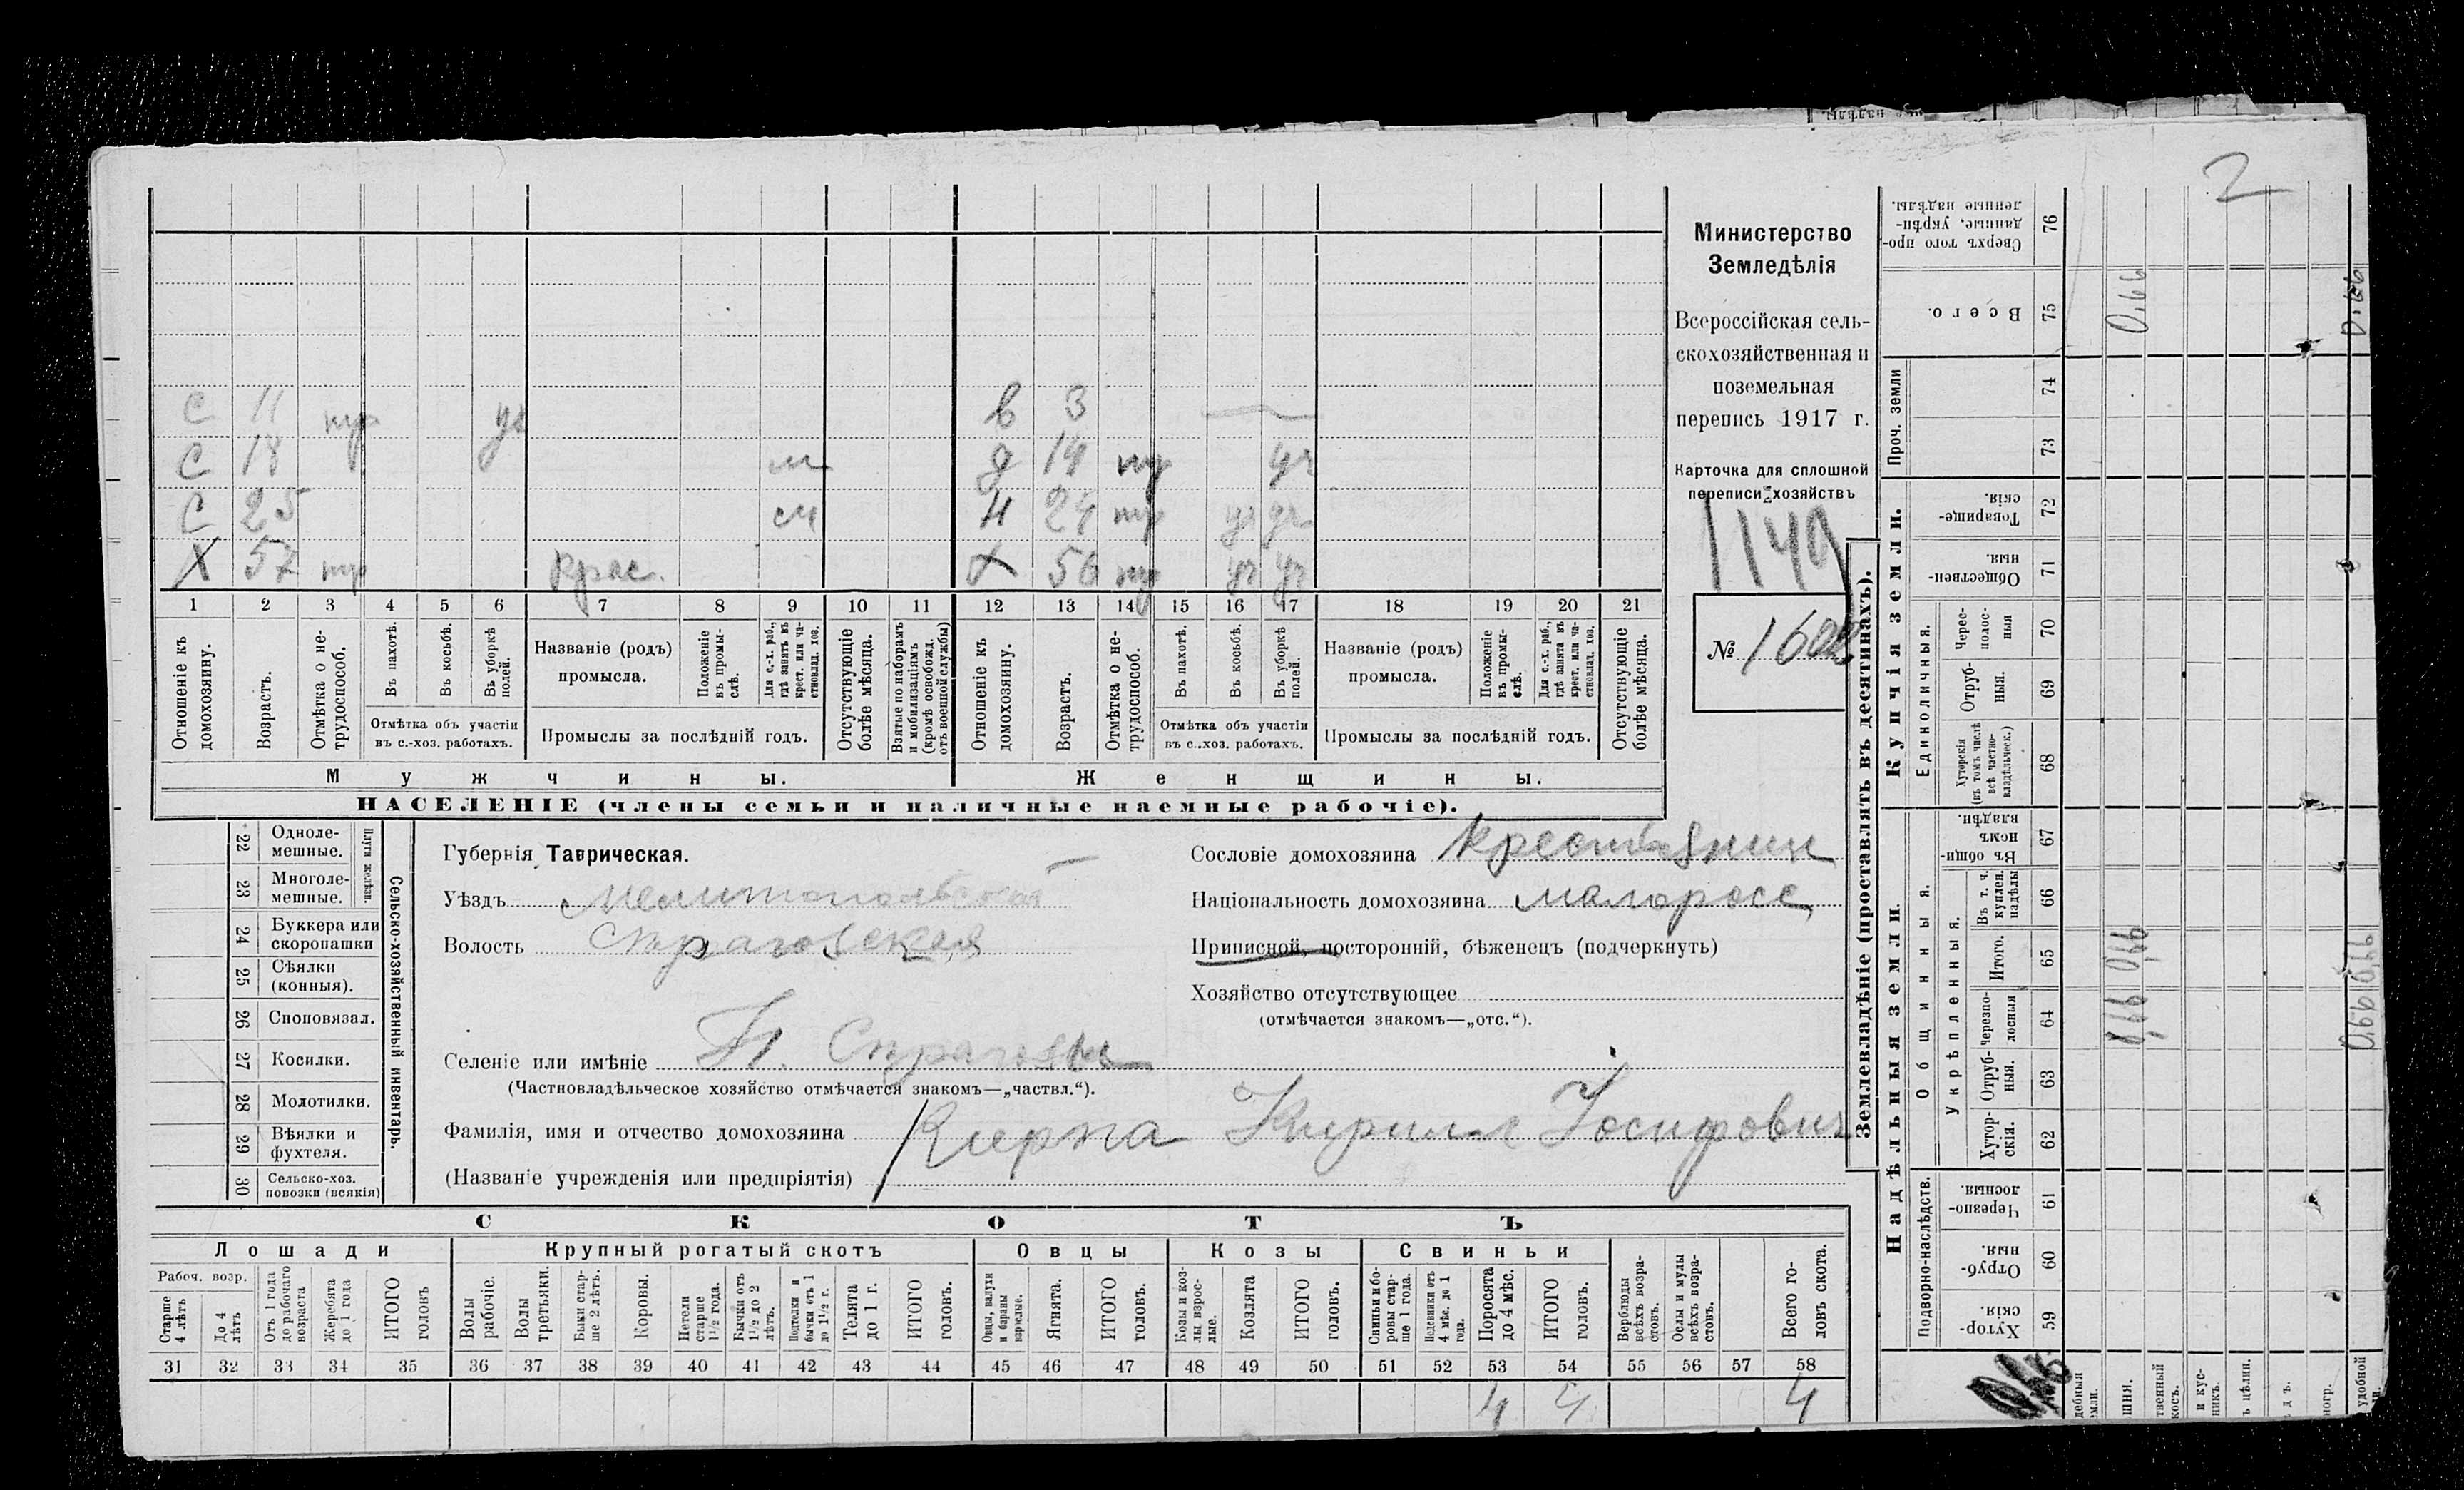 2
Министерство
Земледѣлія
Всероссійская сель-
скохозяйственная и
поземельная
перепись 1917 г.
Карточка для сплошной
переписи хозяйствъ
1149
№ 1602
С 11 нтр уч в 3
С 18 м д 14 нтр уч
С 25 см Н 24 нтр уч уч
Х 57 нтр Х 56 нтр уч уч
1 2 3 4 5 6 7 8 9 10 11 12 13 14 15 16 17 18 19 20 21
Отношеніе къ домохозяину.
Возрастъ.
Отмѣтка о не-трудоспособ.
Въ пахотѣ.
Въ косьбѣ.
Въ уборкѣ полей.
Отмѣтка объ участіи
въ с.-хоз. работахъ.
Названіе (родъ)
промысла.
Положеніе въ промы-слѣ.
Для с.-х. раб., гдѣ занятъ въ крест. или ча-стновлад. хоз.
Промыслы за послѣдній годъ.
Отсутствующіе болѣе мѣсяца.
Взятые по наборамъ и мобилизаціямъ (кромѣ освобожд. отъ военной службы)
Отношеніе къ домохозяину.
Возрастъ.
Отмѣтка о не-трудоспособ.
Въ пахотѣ.
Въ косьбѣ.
Въ уборкѣ полей.
Отмѣтка объ участіи
въ с.-хоз. работахъ.
Названіе (родъ)
промысла.
Положеніе въ промы-слѣ.
Для с.-х. раб., гдѣ занята въ крест. или ча-стновлад. хоз.
Промыслы за послѣдній годъ.
Отсутствующіе болѣе мѣсяца.
Мужчины. Женщины.
НАСЕЛЕНІЕ (члены семьи и наличные наемные рабочіе).
22 Одноле-мешные.
23 Многоле-мешные.
Плуги желѣзн.
24 Буккера или скоропашки
25 Сѣялки (конныя).
26 Сноповязал.
27 Косилки.
28 Молотилки.
29 Вѣялки и фухтеля.
30 Сельско-хоз. повозки (всякія)
Сельско-хозяйственный инвентарь.
Губернія Таврическая.
Уѣздъ Мелитопольской
Волость Строгановская
Селеніе или имѣніе
(Частновладѣльческое хозяйство отмѣчается знакомъ—„частвл.“).
Фамилія, имя и отчество домохозяина Кирпа Кирилл Іосифович
(Названіе учрежденія или предпріятія)
Сословіе домохозяина крестьянин
Національность домохозяина малоросс
Приписной, посторонній, бѣженецъ (подчеркнуть)
Хозяйство отсутствующее
(отмѣчается знакомъ—„отс.“).
СКОТЪ
Лошади Крупный рогатый скотъ Овцы Козы Свиньи
Рабоч. возр.
Старше 4 лѣтъ
До 4 лѣтъ
Отъ 1 года до рабочаго возраста
Жеребята до 1 года
ИТОГО головъ
Волы рабочіе.
Волы третьяки.
Быки стар-ше 2 лѣтъ.
Коровы.
Нетели старше 1½ года.
Бычки отъ 1½ до 2 лѣтъ.
Подтелки и бычки отъ 1 до 1½ г.
Телята до 1 г.
ИТОГО головъ.
Овцы, валухи и бараны взрослые.
Ягнята.
ИТОГО головъ.
Козы и коз-лы взрос-лые.
Козлята
ИТОГО головъ.
Свиньи и бо-ровы стар-ше 1 года.
Подсвинки отъ 4 мѣс. до 1 года.
Поросята до 4 мѣс.
ИТОГО головъ.
Верблюды всѣхъ возра-стовъ.
Ослы и мулы всѣхъ возра-стовъ.
Всего го-ловъ скота.
31 32 33 34 35 36 37 38 39 40 41 42 43 44 45 46 47 48 49 50 51 52 53 54 55 56 57 58
4 4 4
Землевладѣніе (проставлять въ десятинахъ).
Надѣльныя земли.
Купчія земли.
Проч. земли
Подворно-наслѣдств.
Общинныя.
Укрѣпленныя.
Единоличныя.
Хутор-скія. 59
Отруб-ныя. 60
Черезпо-лосныя. 61
Хутор-скія. 62
Отруб-ныя. 63
черезпо-лосныя 64
Итого. 65
Въ т. ч. куплен. надѣлы 66
Въ общи-номъ владѣн. 67
Хуторскія (въ томъ числѣ всѣ частно-владѣльческ.) 68
Отруб-ныя. 69
Черес-полос-ныя 70
Обществен-ныя. 71
Товарище-скія. 72
73
74
Всего. 75
Сверхъ того про-данные, укрѣп-ленные надѣлы. 76
0,66 0,66 0,66
0,66 0,66 0,66